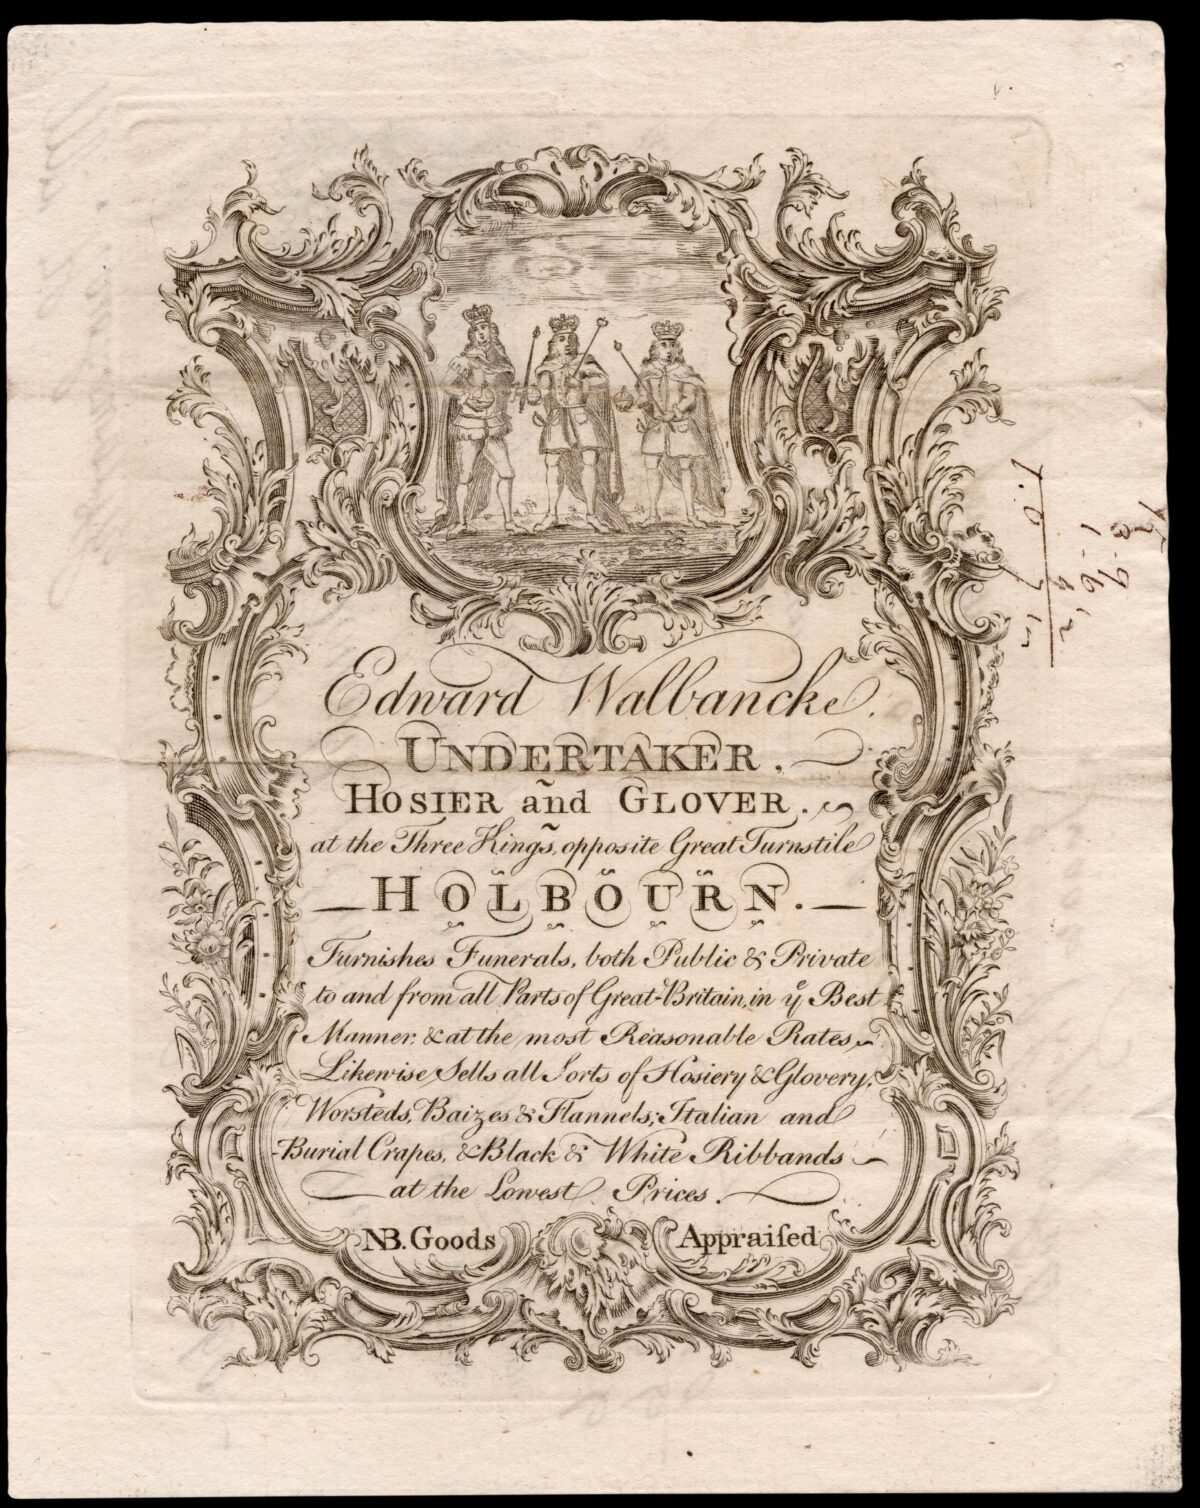 Edward Walbancke.
UNDERTAKER,
HOSIER and GLOVER.
at the Three Kings, opposite Great Turnstile
HOLBOURN.
Furnishes Funerals, both Public & Private
to and from all Parts of Great-Britain, in yᵉ Best
Manner, & at the most Reasonable Rates,
Likewise Sells all Sorts of Hosiery & Glovery,
Worsteds, Baizes & Flannels; Italian and
Burial Crapes, & Black & White Ribbands
at the Lowest Prices.
NB. Goods Appraiſed